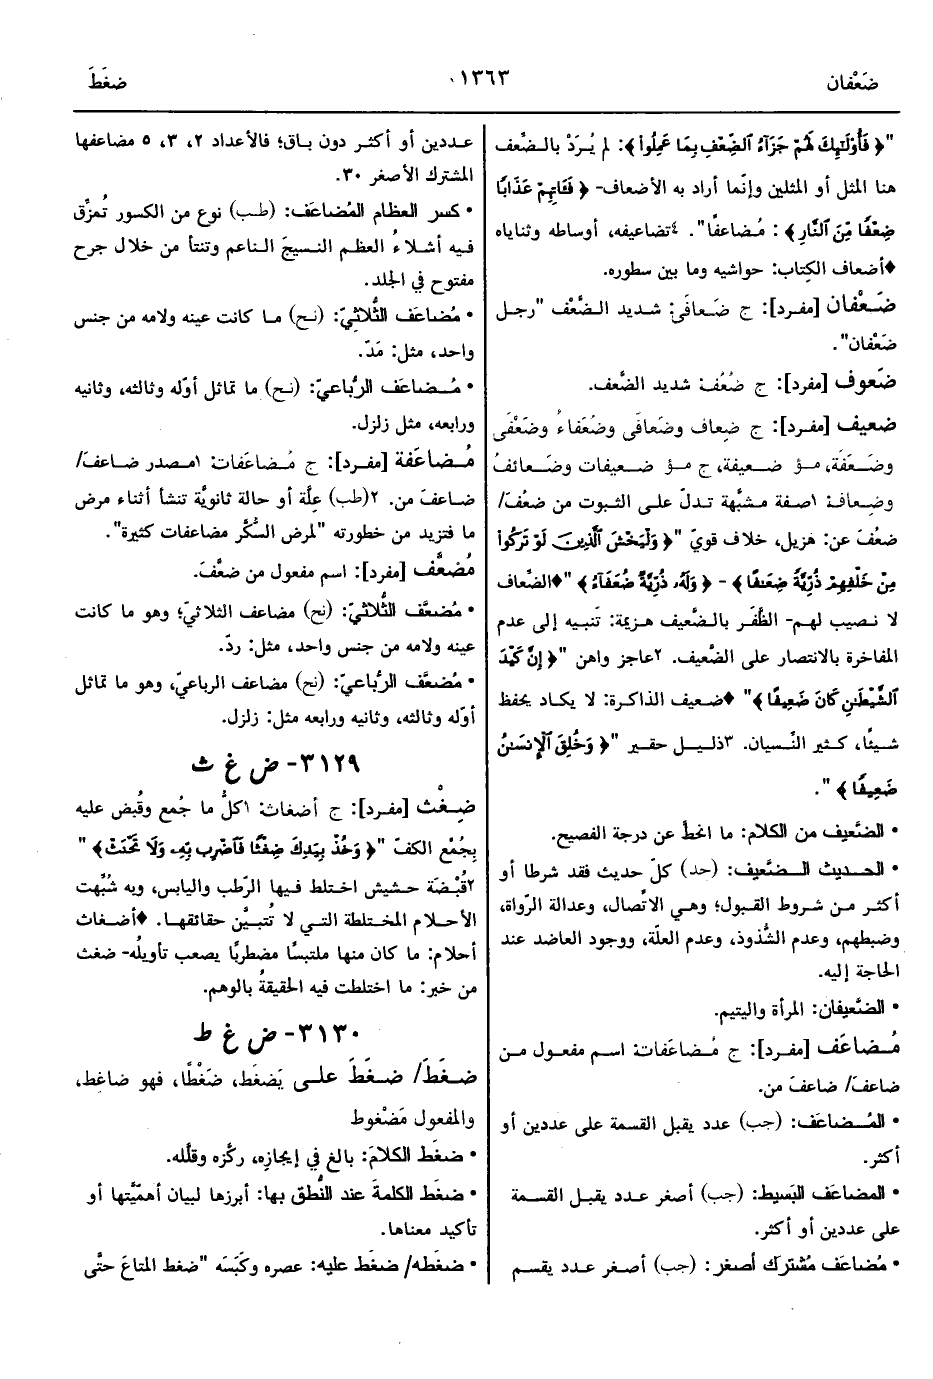 ضَعْفان
١٣٦٣
ضغَطَ
"﴿ فَأُولَئِكَ لَهُمْ جَزَاءُ الضِّعْفِ بِمَا عَمِلُوا ﴾: لم يُرَدْ بالـضِّعف
هنا المثل أو المثلين وإنّما أراد به الأضعاف- ﴿ فَآتِهِمْ عَذَابًا
ضِعْفًا مِنَ النَّارِ ﴾ : مُضاعفًا". ٤تضاعيفه، أوساطه وثناياه
♦أضعاف الكِتاب: حواشيه وما بين سطوره.
ضَعْفان [مفرد]: ج ضَعافَى: شديد الضَّعْف "رجل
ضَعْفان".
ضَعوف [مفرد]: ج ضُعُف: شديد الضَّعف.
ضعيف [مفرد]: ج ضِعاف وضَعافَى وضُعَفاءُ وضَعْفَى
وضَعَفَة، مؤ ضعيفة، ج مؤ ضعيفات وضَعائفُ
وضِعاف: ١صفة مشبَّهة تدلّ على الثبوت من ضعُفَ/
ضعُفَ عن: هزيل، خلاف قويّ "﴿ وَلْيَخْشَ الَّذِينَ لَوْ تَرَكُوا
مِنْ خَلْفِهِمْ ذُرِّيَّةً ضِعَافًا ﴾ - ﴿ وَلَهُ ذُرِّيَّةٌ ضُعَفَاءُ ﴾ "♦الضِّعاف
لا نصيب لهم- الظَّفَر بالضَّعيف هزيمة: تنبيه إلى عدم
المفاخرة بالانتصار على الضَّعيف. ٢عاجز واهن "﴿ إِنَّ كَيْدَ
الشَّيْطَانِ كَانَ ضَعِيفًا ﴾" ♦ضعيف الذاكرة: لا يكاد يحفظ
شيئًا، كثير النِّسيان. ٣ذليل حقير "﴿ وَخُلِقَ الْإِنْسَانُ
ضَعِيفًا ﴾ ".
• الضَّعيف من الكلام: ما انحطّ عن درجة الفصيح.
• الحديث الضَّعيف: (حد) كلّ حديث فقد شرطا أو
أكثر من شروط القبول؛ وهي الاتِّصال، وعدالة الرّواة،
وضبطهم، وعدم الشُّذوذ، وعدم العلّة، ووجود العاضد عند
الحاجة إليه.
• الضَّعيفان: المرأة واليتيم.
مُضاعَف [مفرد]: ج مُضاعَفات: اسم مفعول من
ضاعفَ/ ضاعفَ من.
• المُضاعَف: (جب) عدد يقبل القسمة على عددين أو
أكثر.
• المضاعَف البَسيط: (جب) أصغر عدد يقبل القسمة
على عددين أو أكثر.
• مُضاعَف مُشترك أصغر: (جب) أصغر عدد يقسم
عددين أو أكثر دون باق؛ فالأعداد ٢، ٣، ٥ مضاعفها
المشترك الأصغر ٣٠.
• كسر العظام المُضاعَف: (طب) نوع من الكسور تُمزِّق
فيه أشلاءُ العظم النسيجَ الناعم وتنتأ من خلال جرح
مفتوح في الجلد.
• مُضاعَف الثُّلاثيّ: (نح) ما كانت عينه ولامه من جنس
واحد، مثل: مَدّ.
• مُضاعَف الرُّباعيّ: (نح) ما تماثل أوّله وثالثه، وثانيه
ورابعه، مثل زلزل.
مُضاعَفة [مفرد]: ج مُضاعَفات: ١مصدر ضاعفَ/
ضاعفَ من. ٢(طب) عِلَّة أو حالة ثانويَّة تنشأ أثناء مرض
ما فتزيد من خطورته "لمرض السُّكَّر مضاعفات كثيرة".
مُضعَّف [مفرد]: اسم مفعول من ضعَّفَ.
• مُضعَّف الثُّلاثيّ: (نح) مضاعف الثلاثيّ؛ وهو ما كانت
عينه ولامه من جنس واحد، مثل: ردّ.
• مُضعَّف الرُّباعيّ: (نح) مضاعف الرباعيّ، وهو ما تماثل
أوّله وثالثه، وثانيه ورابعه مثل: زلزل.
٣١٢٩- ض غ ث
ضِغْث [مفرد]: ج أضغاث: ١كلُّ ما جُمع وقُبض عليه
بجُمْع الكفّ "﴿ وَخُذْ بِيَدِكَ ضِغْثًا فَاضْرِبْ بِهِ وَلَا تَحْنَثْ ﴾ "
٢قُبْضَة حشيش اختلط فيها الرَّطب واليابس، وبه شُبِّهت
الأحلام المختلطة التي لا تُتبيَّن حقائقها. ♦أضغاث
أحلام: ما كان منها ملتبسًا مضطربًا يصعب تأويلُه- ضغث
من خبر: ما اختلطت فيه الحقيقةُ بالوهم.
٣١٣٠- ض غ ط
ضغَطَ/ ضغَطَ على يَضغَط، ضَغْطًا، فهو ضاغِط،
والمفعول مَضْغوط
• ضغَط الكلامَ: بالغ في إيجازه، ركَّزه وقلَّله.
• ضغَط الكلمةَ عند النُّطق بها: أبرزها لبيان أهمّيَّتها أو
تأكيد معناها.
• ضغَطه/ ضغَط عليه: عصره وكَبَسَه "ضغط المتاعَ حتَّى